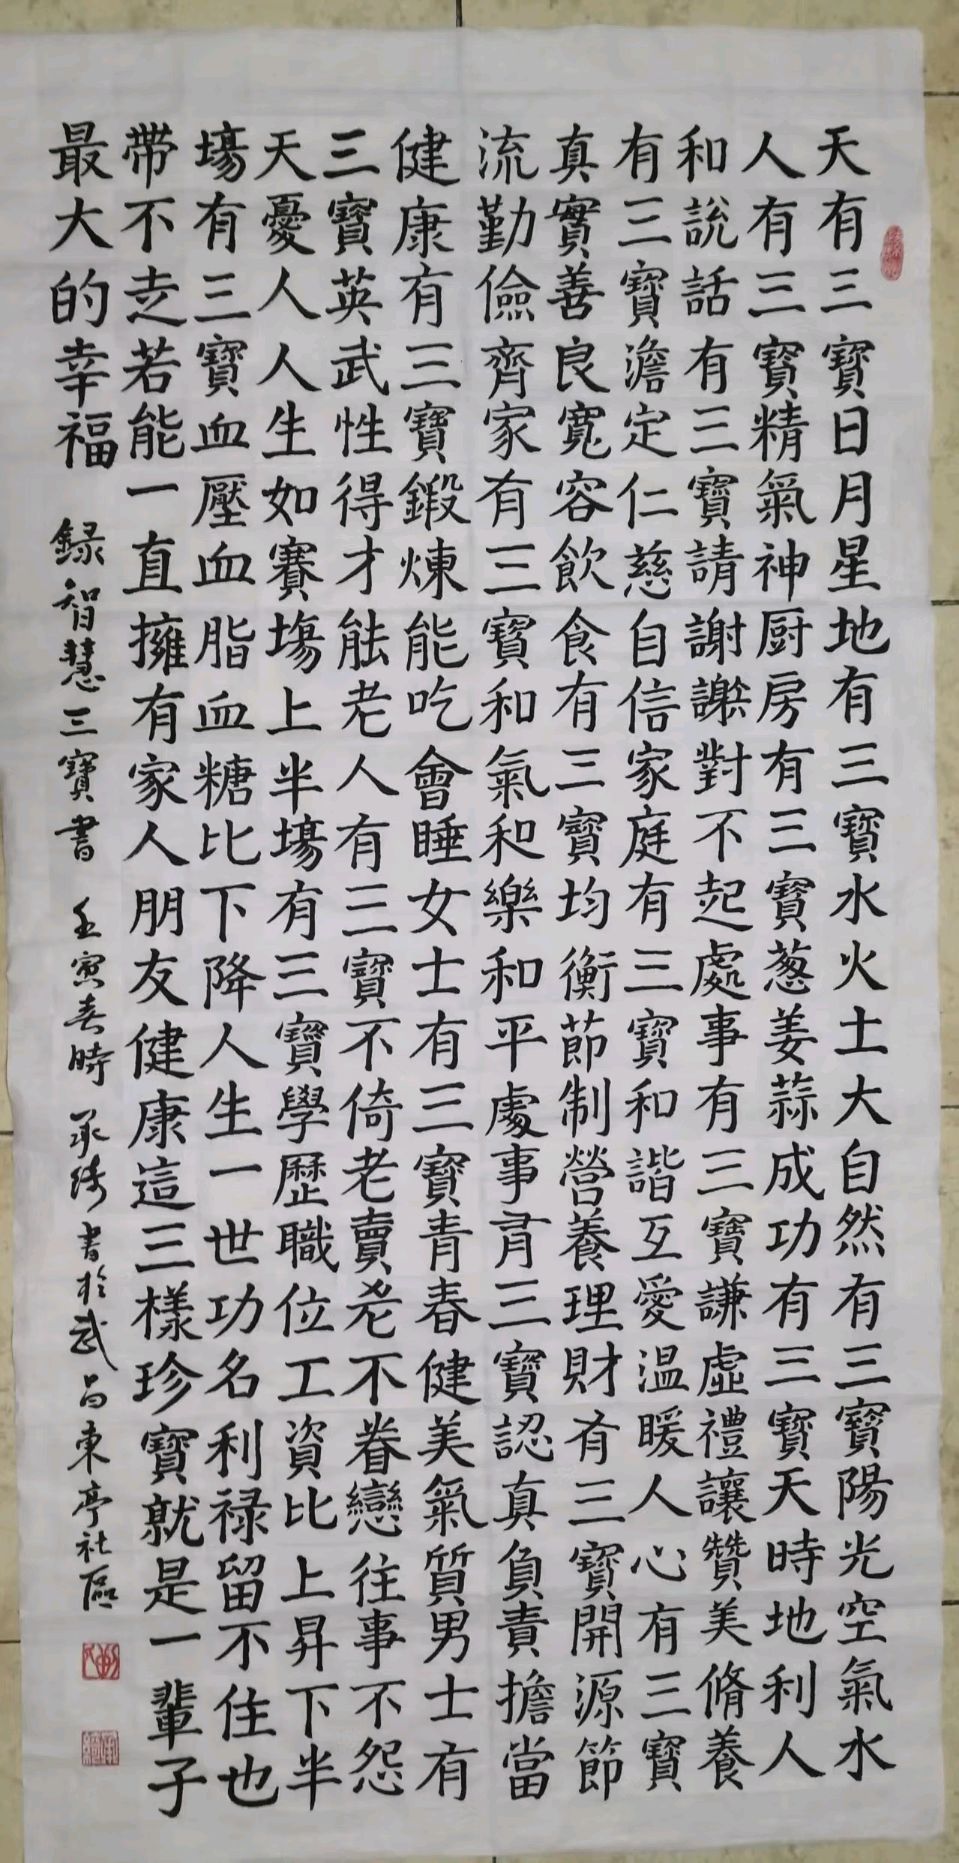 天有三寶日月星地有三寶水火土大自然有三寶陽光空氣水
人有三寶精氣神厨房有三寶葱姜蒜成功有三寶天時地利人
和說話有三寶請謝謝對不起處事有三寶謙虛禮讓贊美脩養
有三寶澹定仁慈自信家庭有三寶和諧互愛温暖人心有三寶
真實善良寬容飲食有三寶均衡節制營養理財有三寶開源節
流勤儉齊家有三寶和氣和樂和平處事有三寶認真負責擔當
健康有三寶鍛煉能吃會睡女士有三寶青春健美氣質男士有
三寶英武性得才能老人有三寶不倚老賣老不眷戀往事不怨
天憂人人生如賽場上半場有三寶學歷職位工資比上昇下半
場有三寶血壓血脂血糖比下降人生一世功名利禄留不住也
帶不走若能一直擁有家人朋友健康這三樣珍寶就是一輩子
最大的幸福 録智慧三寶書 壬寅春時 承綺書於武昌東亭社區